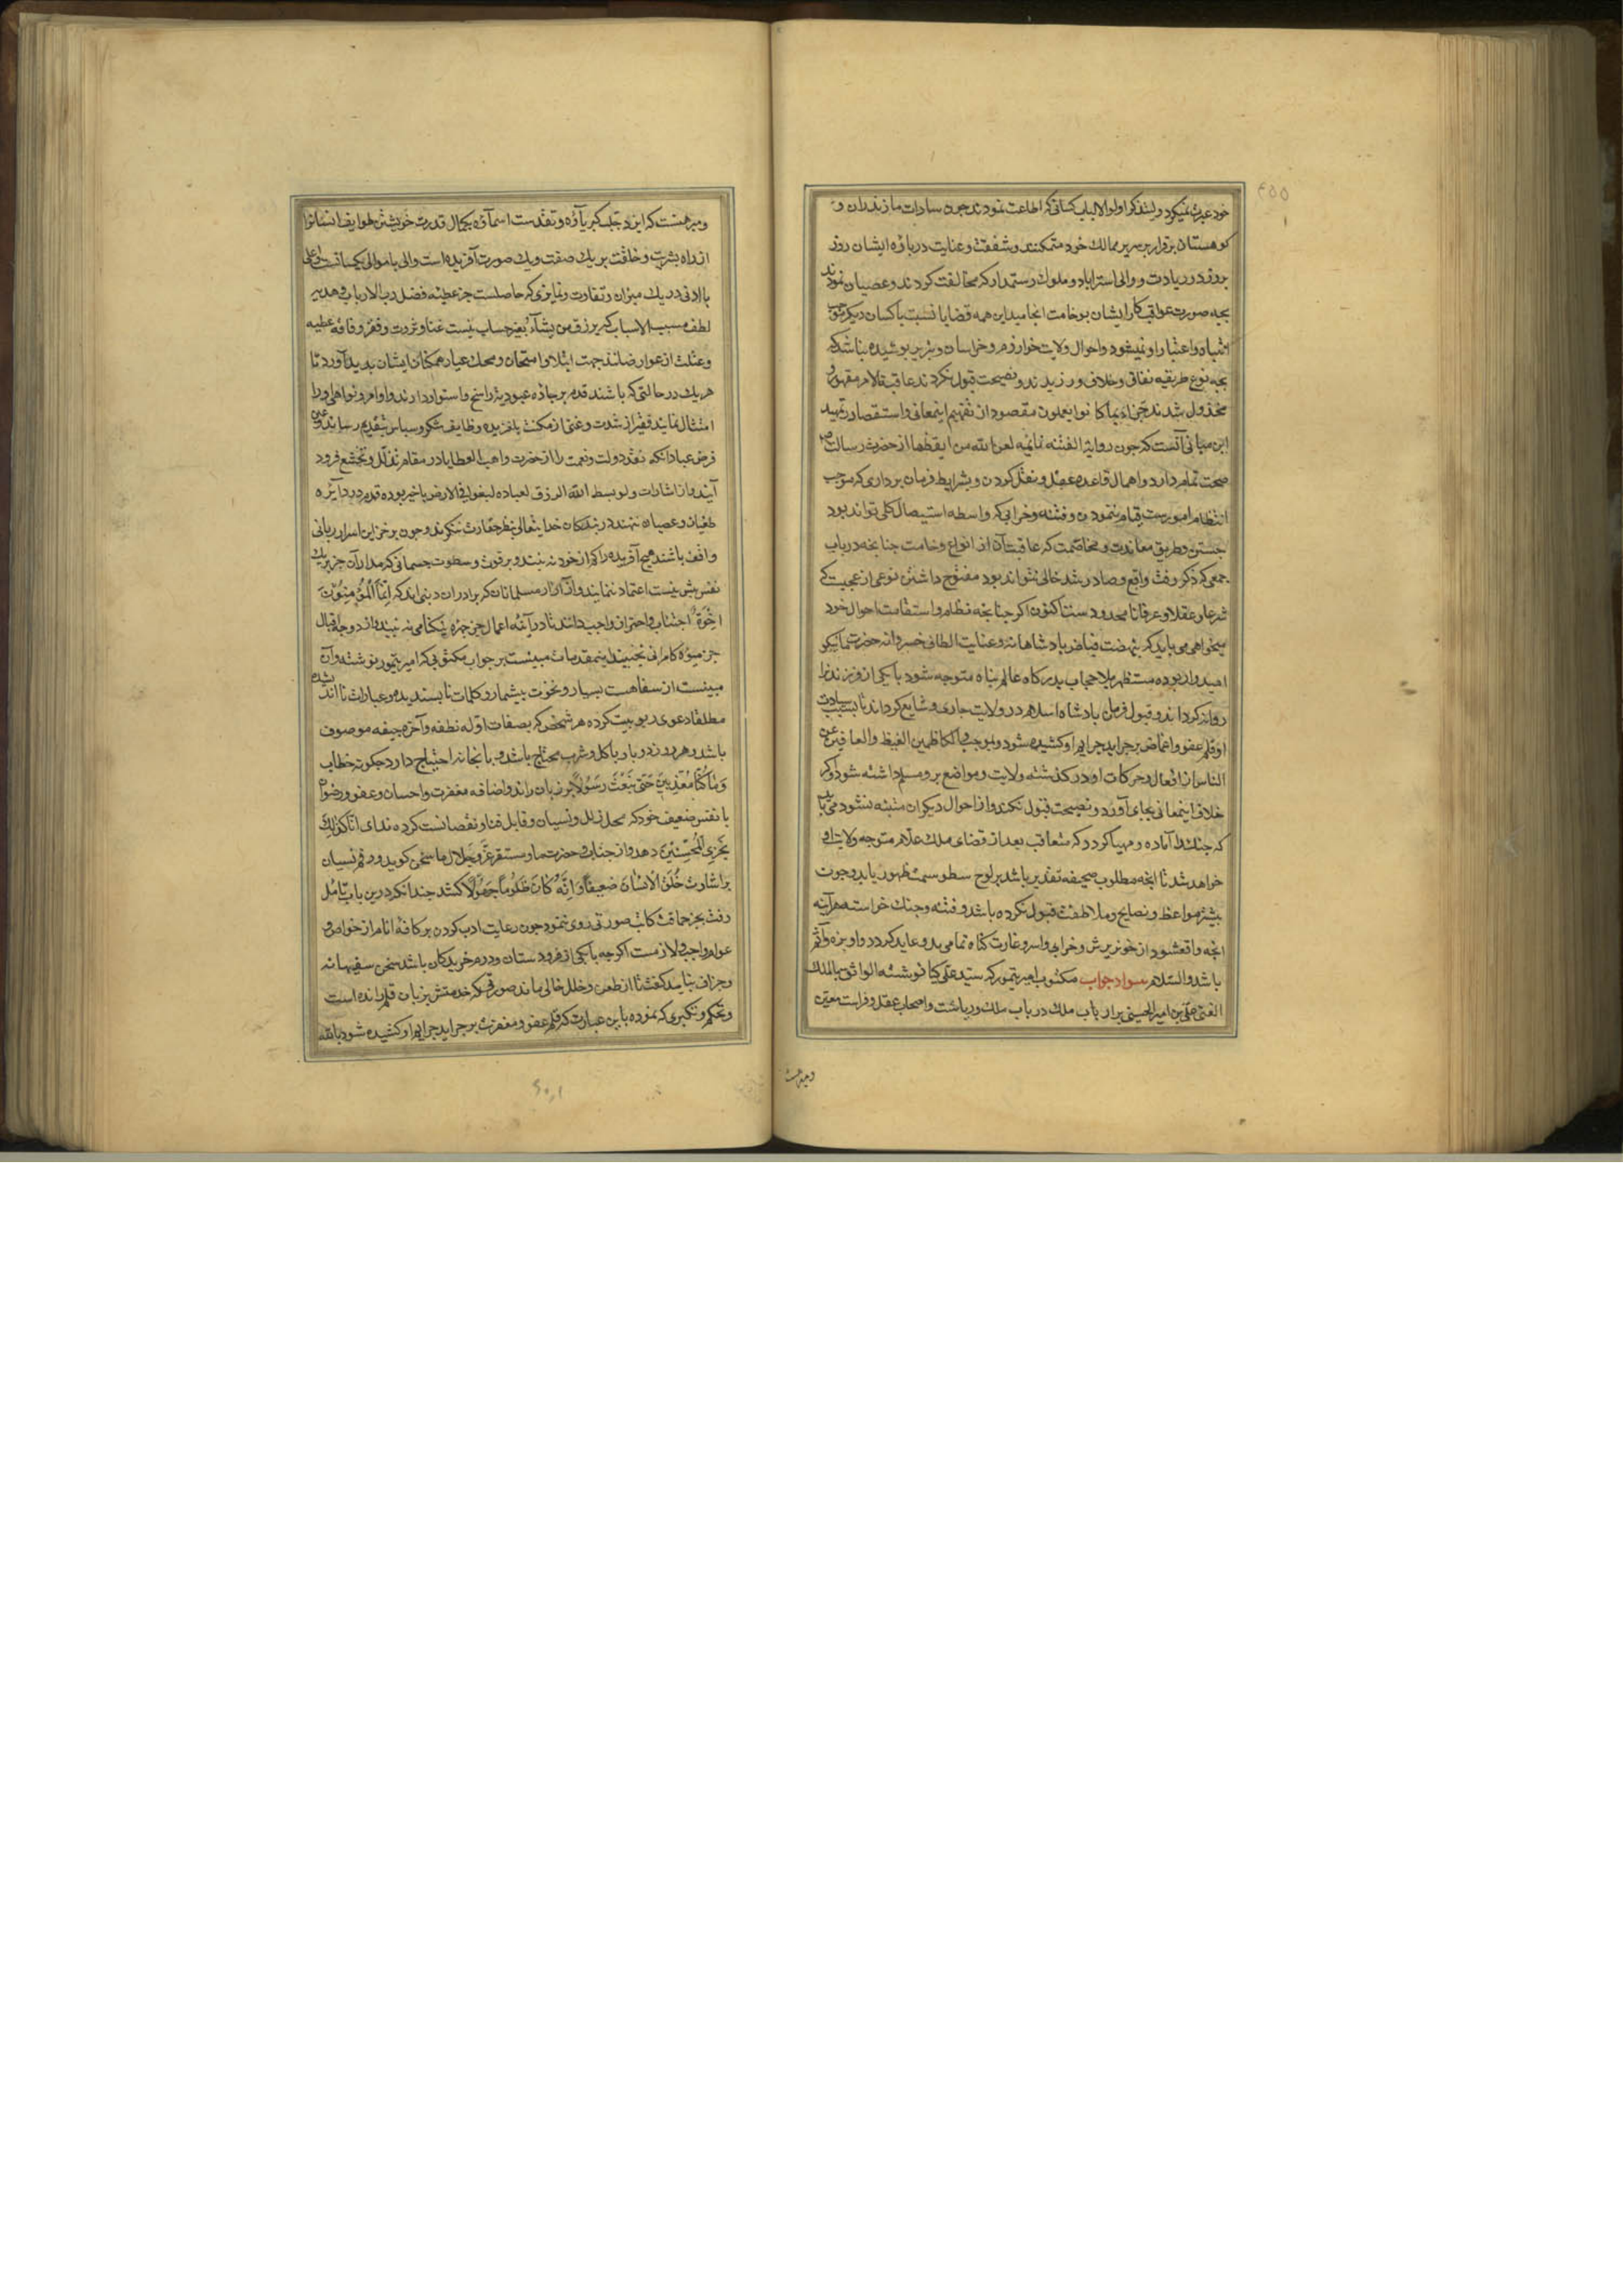 خود عبرت نمیگیرد ولیتذکر اولوا الالباب کسانی که اطاعت نمودند چون سادات مازندران و
کوهستان برقرار بر سریر ممالک خود متمکنند و شفقت و عنایت در بارهٔ ایشان روز
بروز در زیادت و والی استراباد و ملوک رستمدار که مخالفت کردند و عصیان نمودند
بچه صورت عواقب کار ایشان بوخامت انجامید این همه قضایا نسبت با کسان دیگر موجب
انتباه و اعتبار او نمیشود و احوال ولایت خوارزم و خراسان و نیز بر پوشیده نباشد که
بچه نوع طریقه نفاق و خلاف ورزیدند و نصیحت قبول نکردند عاقبة الامر مقهور و
مخذول شدند جزاء بما کانوا یعملون مقصود از تفهیم اینمعانی و استقصا در تمهید
این مبانی آنست که چون روایة الفتنه نائمه لعن الله من ایقظها از حضرت رسالت ص
صحت تمام دارد و اهمال قاعده عقل و نقل کردن و بشرایط فرمان برداری که موجب
انتظام امورست قیام ننمودن و فتنه و خرابی که واسطه استیصال کلی تواند بود
جستن و طریق معاندت و مخاصمت که عاقبت آن از انواع وخامت چنانچه در باب
جمعی که ذکر رفت واقع و صادر شد خالی نتواند بود مفتوح داشتن نوعی از عجبیت که
شرعا و عقلا و عرفا نامحدودست اکنون اگر چنانچه نظام و استقامت احوال خود
میخواهی می باید که بنهضت فیاض پادشاهانه و عنایت الطاف خسروانه حضرت ما نیکو
امیدوار بوده مستظهر بلا حجاب بدرگاه عالم پناه متوجه شود یا یکی از فرزندان را
روانه گرداند و قبول فرمان پادشاه اسلام در ولایت جاری و شایع گرداند تا بسبب سیادت
او قلم عفو و اغماض بر جراید جرایم او کشیده شود و بموجب و الکاظمین الغیظ و العافین عن
الناس از افعال و حرکات او در گذشته ولایت و مواضع برو مسلم داشته شود و اگر
خلاف اینمعانی بجای آورد و نصیحت قبول نکند و از احوال دیگران متنبه نشود می باید
که جنک را آماده و مهیا گردد که متعاقب بعد از قضای ملک علام متوجه ولایت او
خواهد شد تا انچه مطلوب صحیفه تقدیر باشد بر لوح سطو سمت ظهور یابد و چون
بیشتر مواعظ و نصایح و ملاطفت قبول نکرده باشد و فتنه و جنک خواسته هر آینه
انچه واقع شود از خونریزش و خرابی و اسر و غارت گناه تمامی بدو عاید گردد و او بزه و آثم
باشد و السلام سواد جواب مکتوب امیر تیمور که سید علی کیا نوشته الواثق بالملک
الغنی علی بن امیر الحسینی بر ارباب ملک در باب ملک و ریاست و اصحاب عقل و فراست معین
و مبرهنست
و مبرهنست که ایزد جلت کبریآؤه و تقدست اسمآؤه بکمال قدرت خویشتن طوایف انسانرا
از راه بشریت و خلقت بر یک صفت و یک صورت آفریده است والی با موالی یکسانست و اعلی
با ادنی در یک میزان و تفاوت و تمایزی که حاصلست جز عطیه فضل رب الارباب و هدیه
لطف مسبب الاسباب که یرزق من یشآء بغیر حساب نیست غنا و ثروت و فقر و فاقه عطیه
و علت از عوارضاند جهت ابتلا و امتحان و محک عیار همکنان ایشان پدید آورد تا
هر یک در حالتی که باشند قدم بر جاده عبودیت راسخ و استوار دارند و اوامر و نواهی او را
امتثال نمایند فقیر از شدت و غنی از مکنت یا فزیده وظایف شکر و سپاس بتقدیم رسانند و عین
فرض عباد آنکه نقد دولت و نعمت را از حضرت واهب العطایا در مقام تذلل و تخشع فرود
آیند و از اشارات و لو بسط الله الرزق لعباده لبغوا فی الارض با خبر بوده قدم در دایره
طغیان و عصیان ننهند در بندگان خدایتعالی بنظر حقارت ننگرند و چون بر خزاین اسرار ربانی
واقف باشند هیچ آفریده را کم از خود نه بینند و بر قوت و سطوت جسمانی که مدار آن جز بر یک
نفس بیش نیست اعتماد ننمایند و از آزار مسلمانان که برادران دینی اند که اِنَّمَا الْمُؤْمِنُونَ
اِخْوَة اجتناب و احتراز واجب دانند تا در آینه اعمال جز چهره نیکنامی نه بینند و از دوحه اقبال
جز میوهٔ کامرانی نچینند اینمقدمات مبینست بر جواب مکتوبی که امیر تیمور نوشته و آن
مبینست از سفاهت بسیار و نخوت بیشمار و کلمات ناپسندیده و عبارات نا اندیشیده
مطلقا دعوی ربوبیت کرده هر شخص که بصفات اوله نطفه و آخره جیفه موصوف
باشد و هر روز دو بار باکل و شرب محتاج باشد و با بخانه احتیاج دارد چگونه خطاب
وَ مَا کُنَّا مُعَذِّبِینَ حَتّی نَبْعَثَ رَسُولًا بر زبان راند و اضافه مغفرت و احسان و عفو و رضوان
با نفس ضعیف خود که محل زلل و نسیان و قابل فنا و نقصانست کرده ندای اِنَّا کَذَلِکَ
نَجْزِی الْمُحْسِنِینَ دهد و از جناب و حضرت ما و مستقر عز و جلال ما سخن گوید و رقم نسیان
بر اشارت خُلِقَ الْاِنْسَانَ ضَعِیفًا وَ اِنَّهُ کَانَ ظَلُومًا جَهُولًا کشد چندانکه درین باب تامل
رفت بجز حماقت کاتب صورتی روی ننمود چون رعایت ادب کردن بر کافه انام از خواص و
عوام واجب و لازمست اگرچه با یکی از فرودستان و درم خریدگان باشد سخن سفیهانه
و جزاف نباید گفت تا از طعن و خلل خالی ماند صورتی که خدمتش بزبان قلم رانده است
و تحکم و تکبری که نموده باین عبارت که قلم عفو و مغفرت بر جراید جرایم او کشیده شود بالله